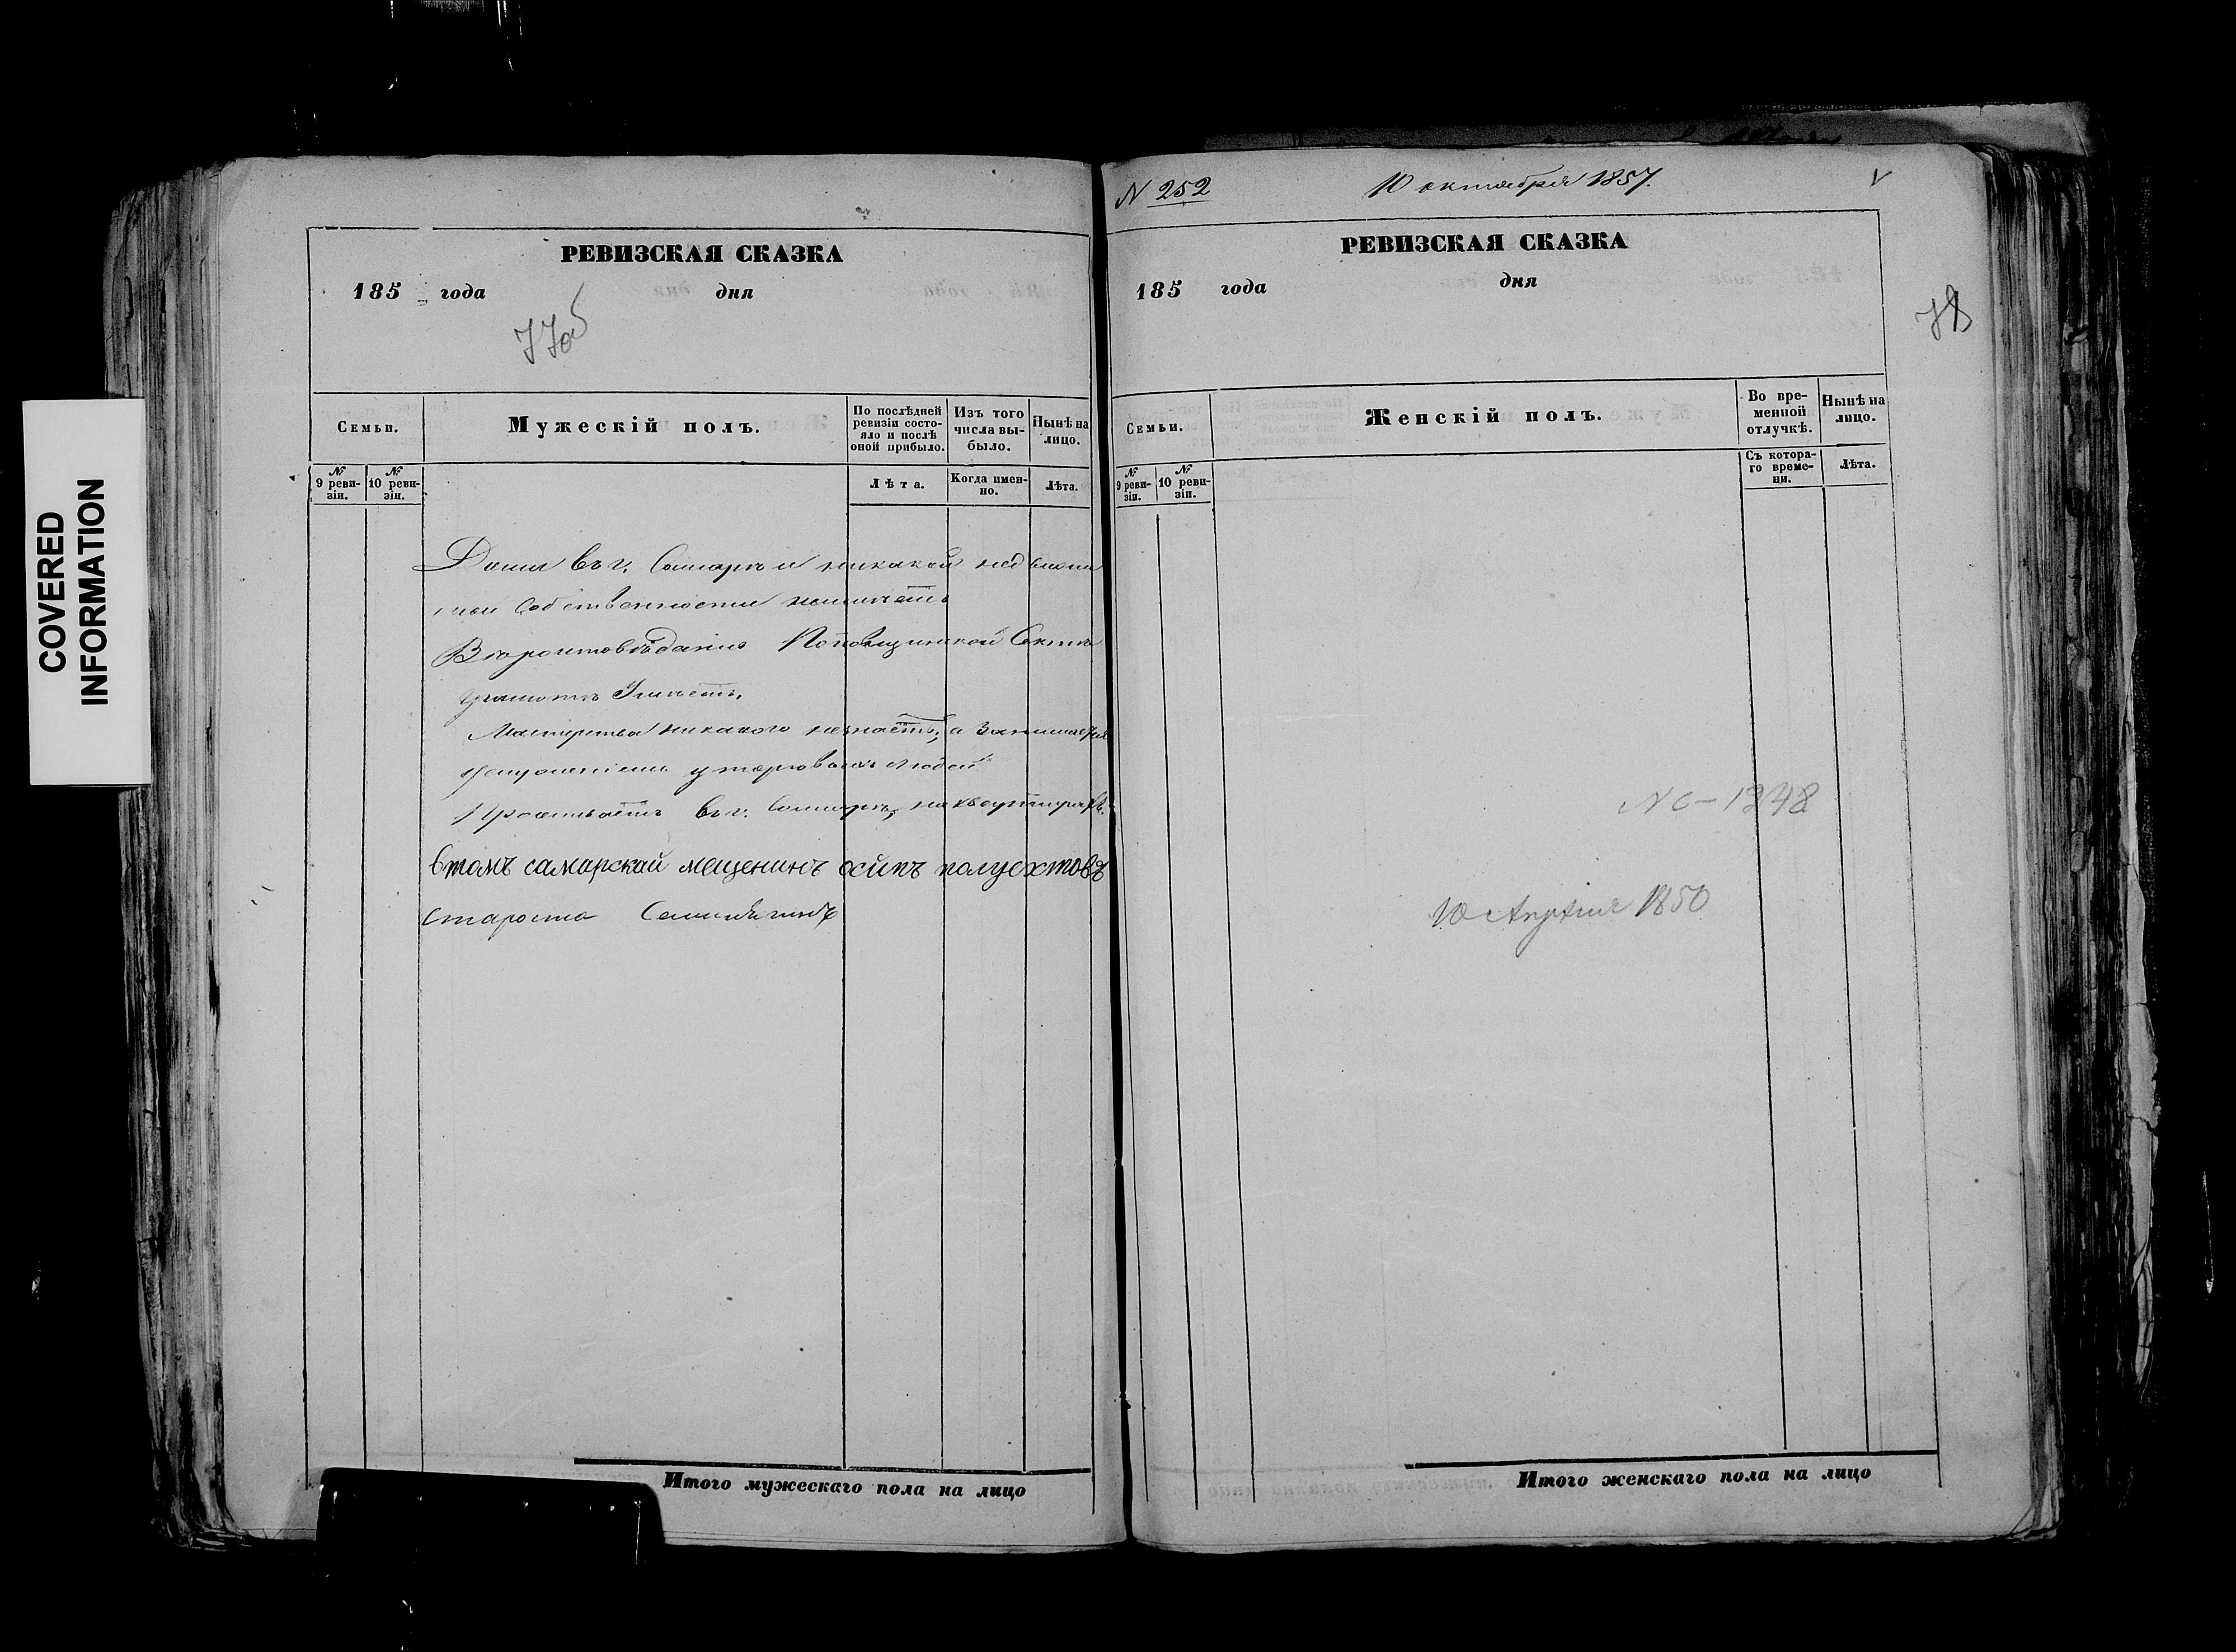 COVERED
INFORMATION
РЕВИЗСКАЯ СКАЗКА
185 года дня
77об
Семьи.
Мужескій полъ.
По послѣдней ревизіи состояло и послѣ оной прибыло.
Изъ того числа выбыло.
Нынѣ на лицо.
№ 9 ревизіи.
№ 10 ревизіи.
Лѣта.
Когда именно.
Лѣта.
Дома въ г. Самарѣ и никакой недвижи
мой собственности неимѣетъ
Вѣроисповѣданія Поповщинской Секты
грамотѣ Умѣетъ.
Мастерства никакого незнаетъ, а занимается
услуженіемъ у торговыхъ людей
Проживаетъ въ г. Самарѣ, на квартирѣ
втомъ самарскай мещенинъ осипъ полуехтовъ
Староста
Итого мужескаго пола на лицо
N 252
10 октября 1857.
РЕВИЗСКАЯ СКАЗКА
185 года дня
78
Семьи.
Женскій полъ.
Во временной отлучкѣ.
Нынѣ на лицо.
№ 9 ревизіи.
№ 10 ревизіи.
Съ котораго времени.
Лѣта.
10 Апрѣля 1850
Итого женскаго пола на лицо